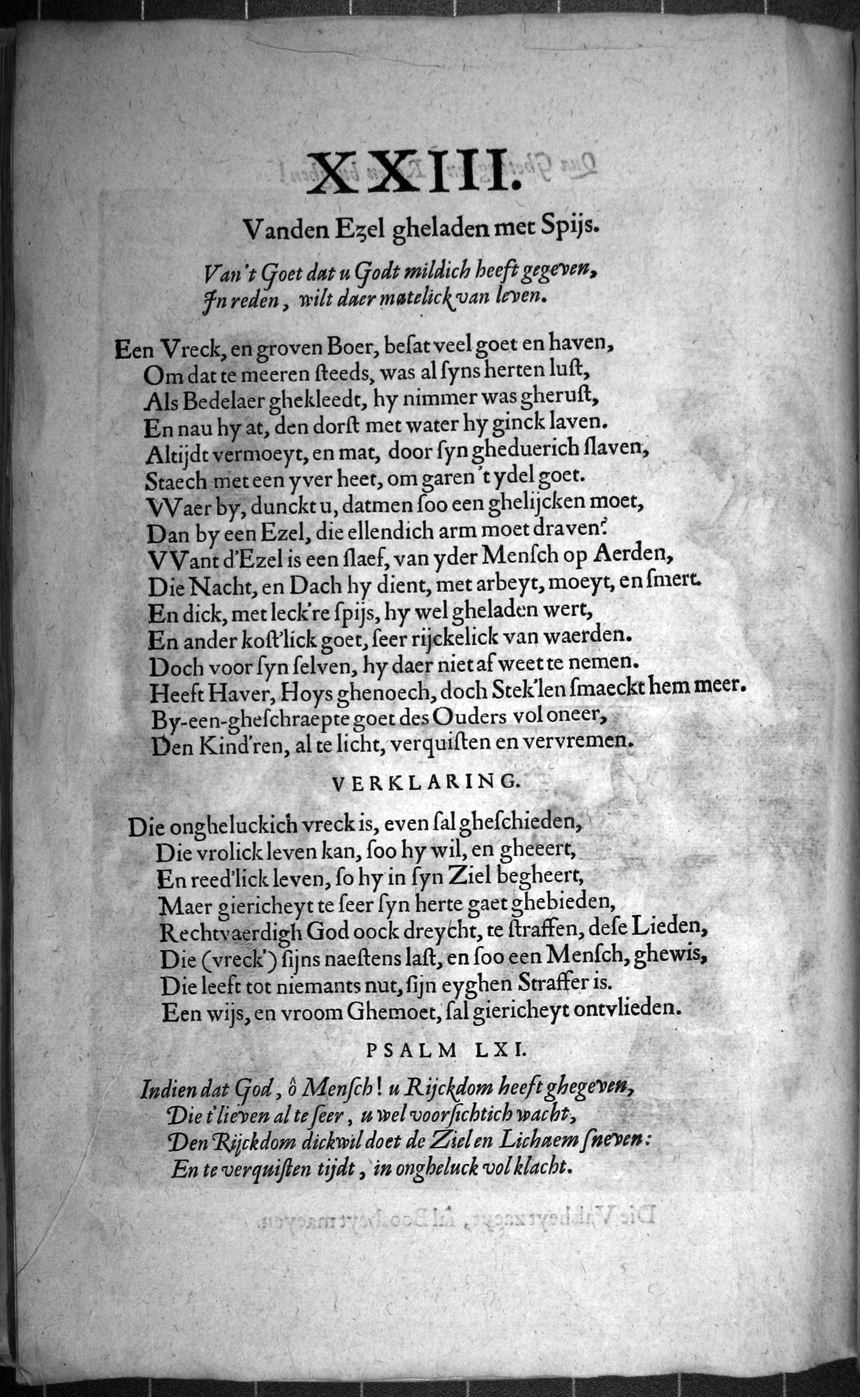 XXIII.
Vanden Eʒel gheladen met Spijs.
Van't Goet dat u Godt mildich heeft gegeven,
In reden, wilt daer matelick van leven.
Een Vreck, en groven Boer, beſat veel goet en haven,
Om dat te meeren ſteeds, was al ſyns herten luſt,
Als Bedelaer ghekleedt, hy nimmer was gheruſt,
En nau hy at, den dorſt met water hy ginck laven.
Altijdt vermoeyt, en mat, door ſyn gheduerich ſlaven,
Staech met een yver heet, om garen 't ydel goet.
VVaer by, dunckt u, datmen ſoo een ghelijcken moet,
Dan by een Ezel, die ellendich arm moet draven?
VVant d'Ezel is een ſlaef, van yder Menſch op Aerden,
Die Nacht, en Dach hy dient, met arbeyt, moeyt, en ſmert.
En dick, met leck're ſpijs, hy wel gheladen wert,
En ander koſt'lick goet, ſeer rijckelick van waerden.
Doch voor ſyn ſelven, hy daer niet af weet te nemen.
Heeft Haver, Hoys ghenoech, doch Stek'len ſmaeckt hem meer.
By-een-gheſchraepte goet des Ouders vol oneer,
Den Kind'ren, al te licht, verquiſten en vervremen.
VERKLARING.
Die ongheluckich vreck is, even ſal gheſchieden,
Die vrolick leven kan, ſoo hy wil, en gheeert,
En reed'lick leven, ſo hy in ſyn Ziel begheert,
Maer giericheyt te ſeer ſyn herte gaet ghebieden,
Rechtvaerdigh God oock dreycht, te ſtraffen, deſe Lieden,
Die (vreck') ſijns naeſtens laſt, en ſoo een Menſch, ghewis,
Die leeft tot niemants nut, ſijn eyghen Straffer is.
Een wijs, en vroom Ghemoet, ſal giericheyt ontvlieden.
PSALM LXI.
Indien dat God, ô Menſch! u Rijckdom heeft ghegeven,
Die t'lieven al te ſeer, u wel voorſichtich wacht,
Den Rijckdom dickwil doet de Ziel en Lichaem ſneven:
En te verquiſten tijdt, in ongheluck vol klacht.